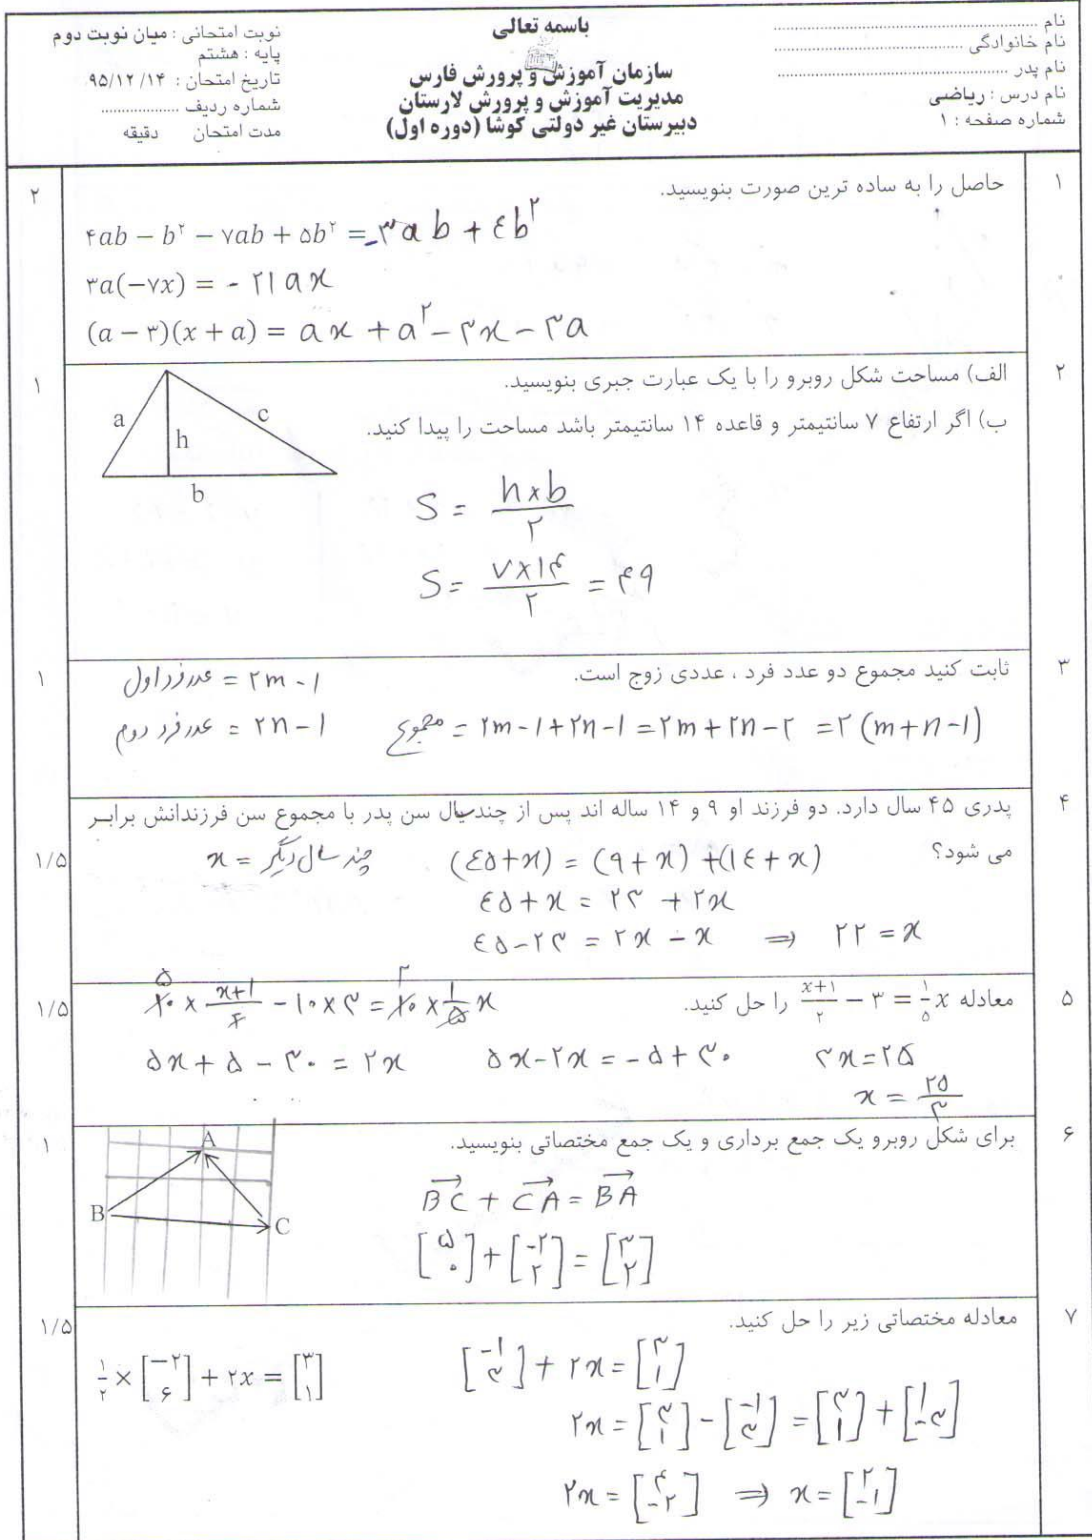 باسمه تعالی
نام ........................
نام خانوادگی ........................
نام پدر ........................
نام درس : ریاضی
شماره صفحه : ۱
سازمان آموزش و پرورش فارس
مدیریت آموزش و پرورش لارستان
دبیرستان غیر دولتی کوشا (دوره اول)
نوبت امتحانی : میان نوبت دوم
پایه : هشتم
تاریخ امتحان : ۹۵/۱۲/۱۴
شماره ردیف ..................
مدت امتحان دقیقه
۱ حاصل را به ساده ترین صورت بنویسید. ۲
۴ab − b^۲ − ۷ab + ۵b^۲ = -۳ab + ٤b^۲
۳a(−۷x) = - ۲۱ax
(a − ۳)(x + a) = ax + a^۲ - ۳x - ۳a
۲ الف) مساحت شکل روبرو را با یک عبارت جبری بنویسید. ۱
ب) اگر ارتفاع ۷ سانتیمتر و قاعده ۱۴ سانتیمتر باشد مساحت را پیدا کنید.
a c h b
S = (h×b)/۲
S = (۷×۱۴)/۲ = ۴۹
۳ ثابت کنید مجموع دو عدد فرد ، عددی زوج است. ۱
عدد فرد اول = ۲m - ۱
عدد فرد دوم = ۲n - ۱ مجموع = ۲m-۱+۲n-۱ = ۲m+۲n-۲ = ۲(m+n-۱)
۴ پدری ۴۵ سال دارد. دو فرزند او ۹ و ۱۴ ساله اند پس از چند سال سن پدر با مجموع سن فرزندانش برابر
می شود؟ ۱/۵
چند سال دیگر = x (٤۵+x) = (۹+x) + (۱٤+x)
٤۵+x = ۲۳ + ۲x
٤۵-۲۳ = ۲x - x ⇒ ۲۲ = x
۵ معادله (x+۱)/۲ − ۳ = ۱/۵ x را حل کنید. ۱/۵
۱۰ × (x+۱)/۲ - ۱۰×۳ = ۱۰ × ۱/۵ x
۵ ۲
۵x + ۵ - ۳۰ = ۲x ۵x-۲x = -۵+۳۰ ۳x=۲۵
x = ۲۵/۳
۶ برای شکل روبرو یک جمع برداری و یک جمع مختصاتی بنویسید. ۱
A B C
BC + CA = BA
[۵ ۰] + [-۲ ۲] = [۳ ۲]
۷ معادله مختصاتی زیر را حل کنید. ۱/۵
۱/۲ × [−۲ ۶] + ۲x = [۳ ۱]
[-۱ ۳] + ۲x = [۳ ۱]
۲x = [۳ ۱] - [-۱ ۳] = [۳ ۱] + [۱ -۳]
۲x = [۴ -۲] ⇒ x = [۲ -۱]